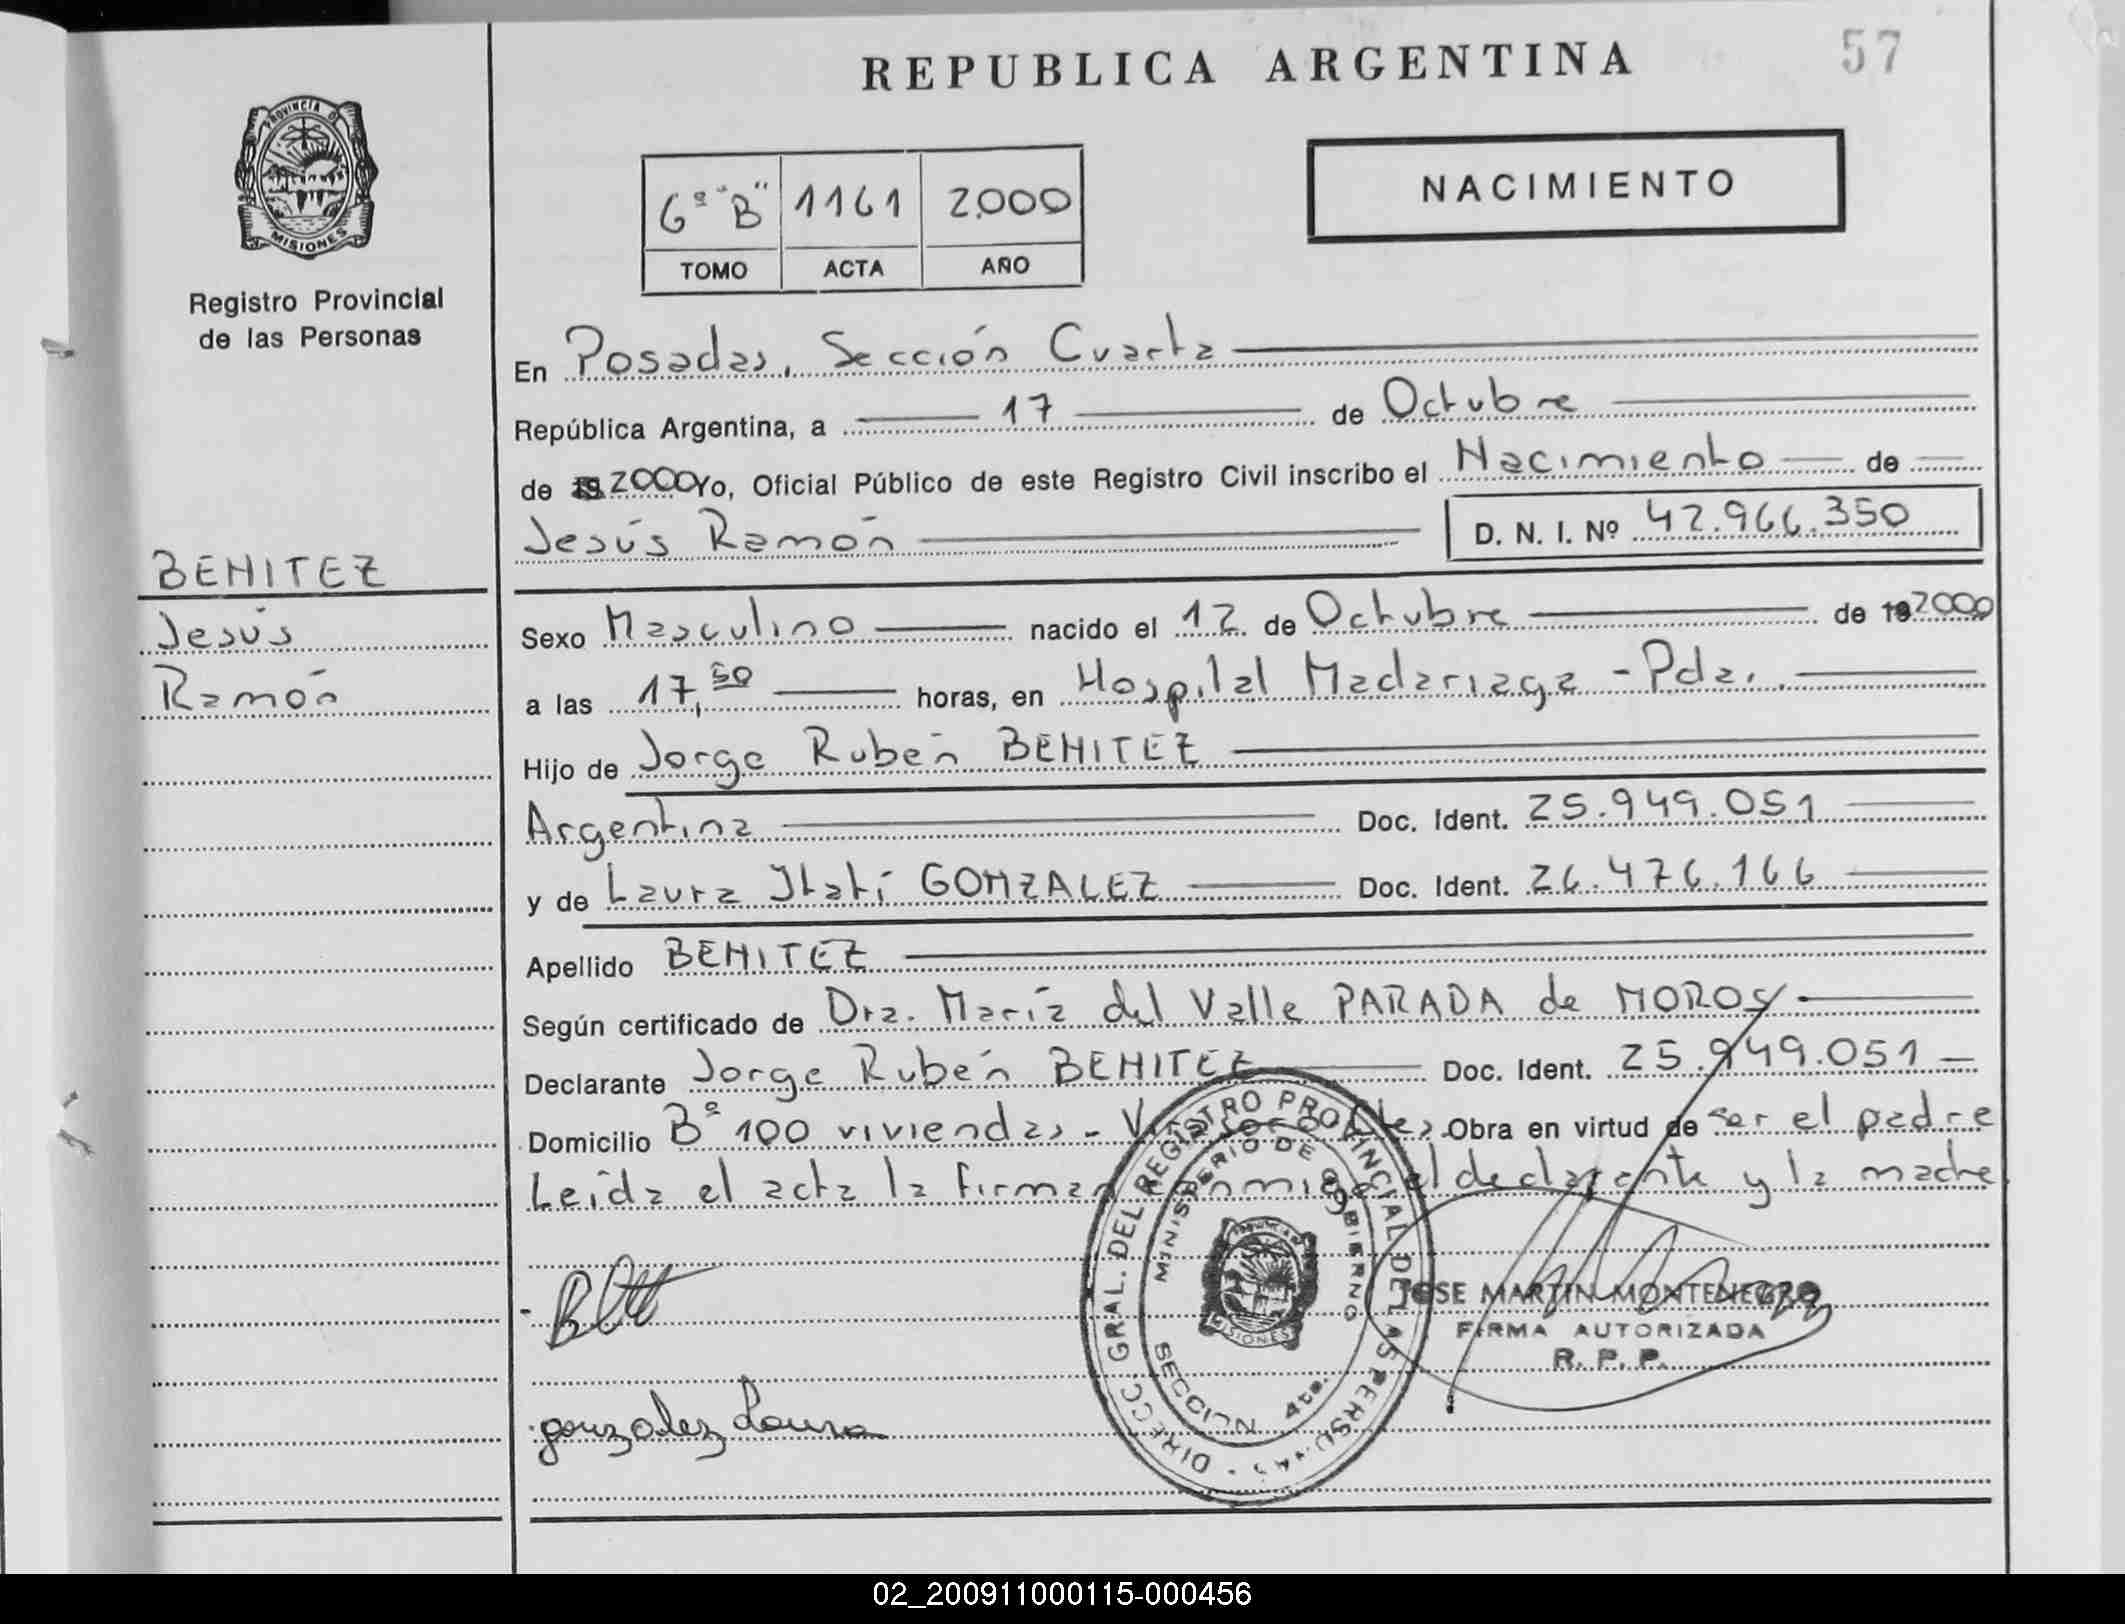 REPUBLICA ARGENTINA
57
PROVINCIA DE
MISIONES
Registro Provincial
de las Personas
6º "B" 1161 2.000
TOMO ACTA AÑO
NACIMIENTO
En Posadas, Sección Cuarta
República Argentina, a 17 de Octubre
de 19 2000 Yo, Oficial Público de este Registro Civil inscribo el Nacimiento de
Jesús Ramón D. N. I. Nº 42.966.350
BENITEZ
Jesús
Ramón
Sexo Masculino nacido el 12 de Octubre de 19 2000
a las 17,50 horas, en Hospital Madariaga - Pdas.
Hijo de Jorge Rubén BENITEZ
Argentina Doc. Ident. 25.949.051
y de Laura Itatí GONZALEZ Doc. Ident. 26.476.166
Apellido BENITEZ
Según certificado de Dra. María del Valle PARADA de MOROS
Declarante Jorge Rubén BENITEZ Doc. Ident. 25.949.051
Domicilio Bº 100 viviendas - Obra en virtud de ser el padre
Leída el acta la firman conmigo el declarante y la madre
gonzalez Laura
DIRECC GRAL. DEL REGISTRO PROVINCIAL DE LAS PERSONAS
MINISTERIO DE GOBIERNO
SECCION 4ta.
MISIONES
JOSE MARTIN MONTENEGRO
FIRMA AUTORIZADA
R. P. P.
02_200911000115-000456